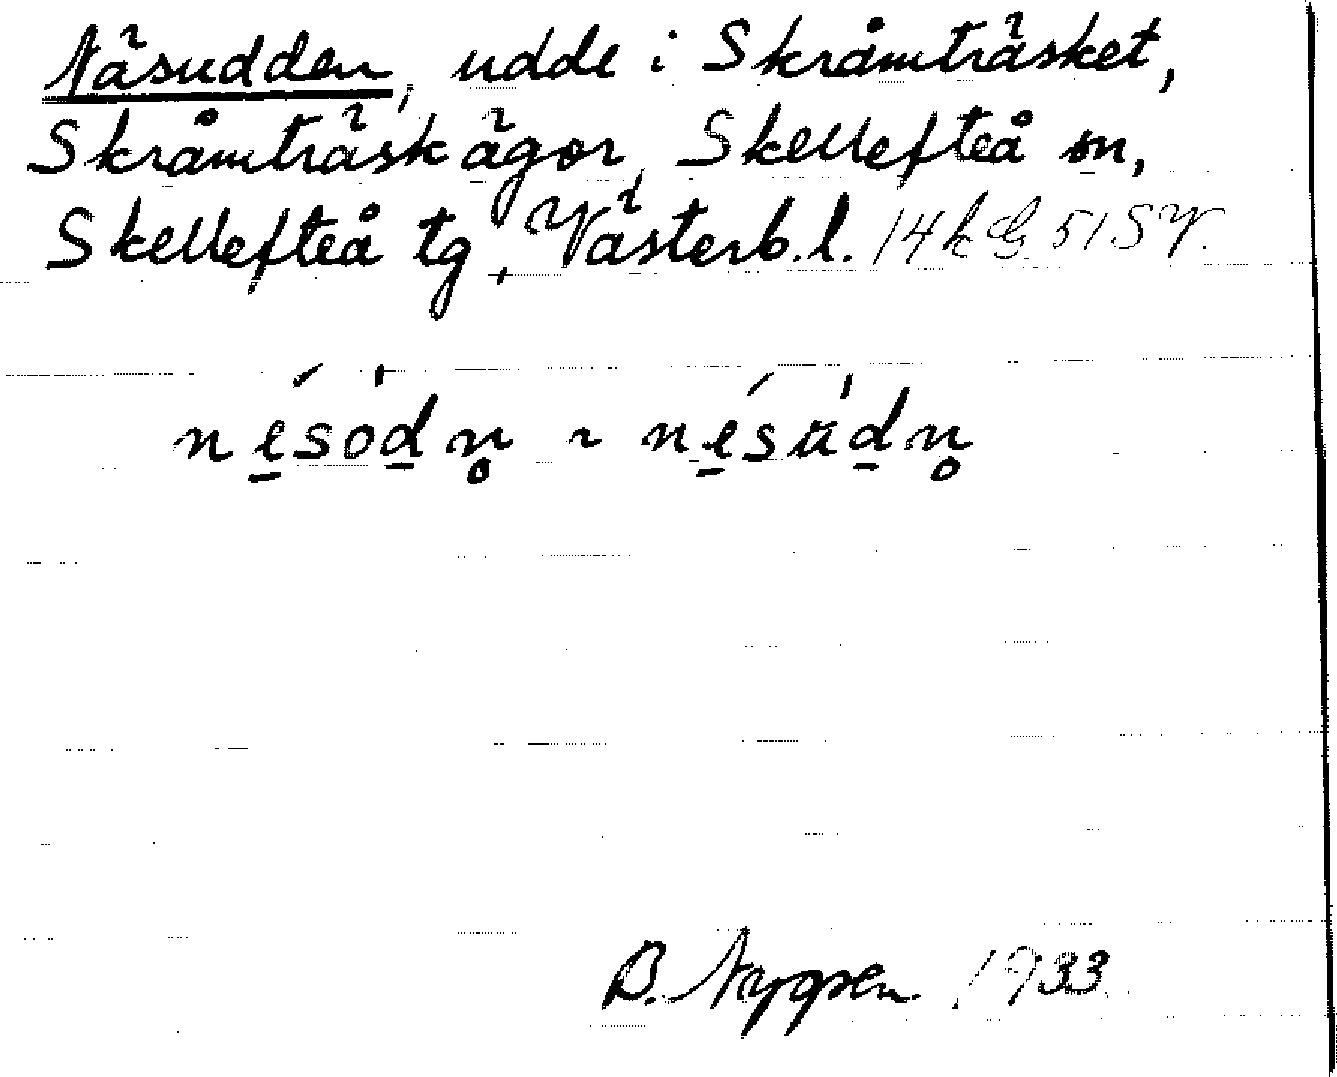 Näsudden, udde i Skråmträsket,
Skråmträskägor, Skellefteå sn,
Skellefteå tg, Västerb.l. 14k G 51 SV.
nésòdn̥ ~ nésùdn̥
B. Nygren 1933